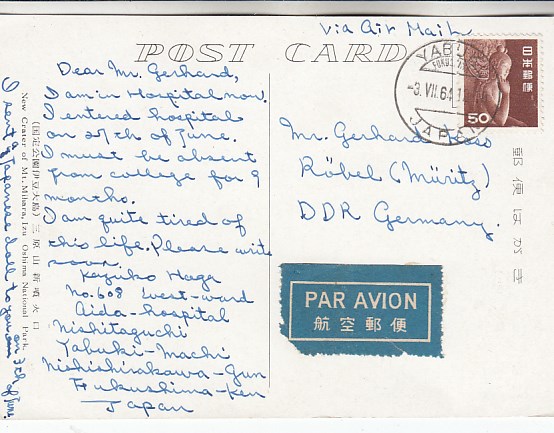 Via Air Mail
POST CARD
Dear Mr. Gerhard,
I am in Hospital now.
I entered hospital
on 27th of June.
I must be absent
from college for 9
months.
I am quite tired of
this life. Please write
soon.
Kazuko Haga
No. 608 West-ward
Aida-hospital
Nishitaguchi
Yabuki-Machi
Nishishirakawa-Gun
Fukushima-ken
Japan
I sent a Japanese doll to you on 7th of June.
(国定公園伊豆大島) 三原山新噴火口
New Crater of Mt. Mihara, Izu Oshima National Park.
YABUKI
-3. VII. 64
JAPON
日本郵便
50
Mr. Gerhard
Röbel (Müritz)
DDR Germany.
郵便はがき
PAR AVION
航空郵便